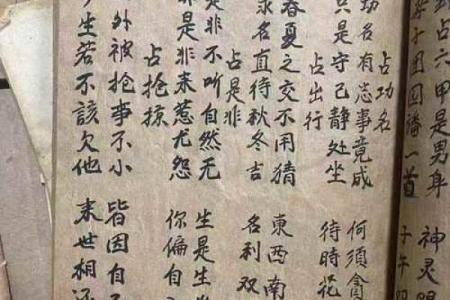 占六甲是男身 神灵
十 圆 一首 子午
占功名
功名有志事竟成 何須貪
只是守己静处坐 待時花
占出行
春夏之交不用猜 東西南
求名直待秋冬吉 名利双
占是非
是非不听自然无 生是生
非是非来惹尤怨 你偏自
占抢掠
外被抢事不小 皆因自
生若不該欠他 来世相还